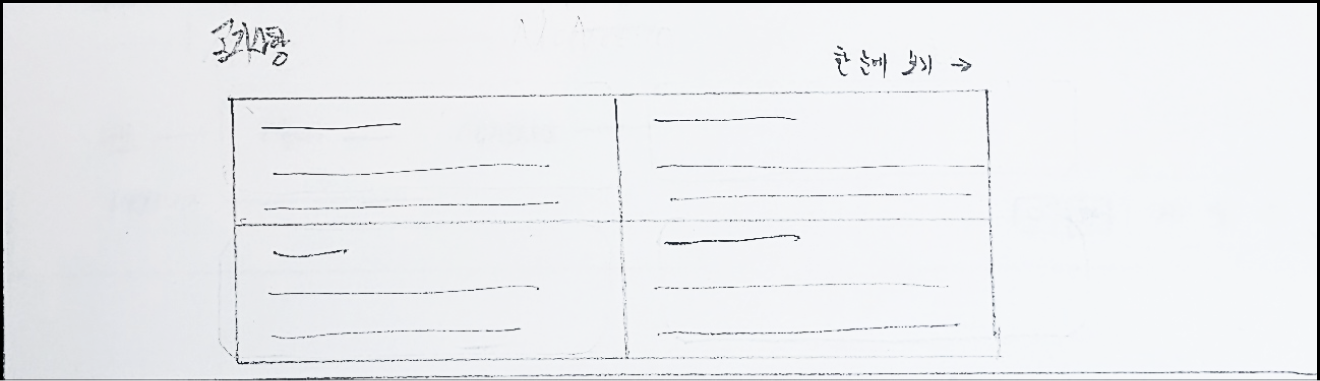 공지사항
한 눈에 보기 →